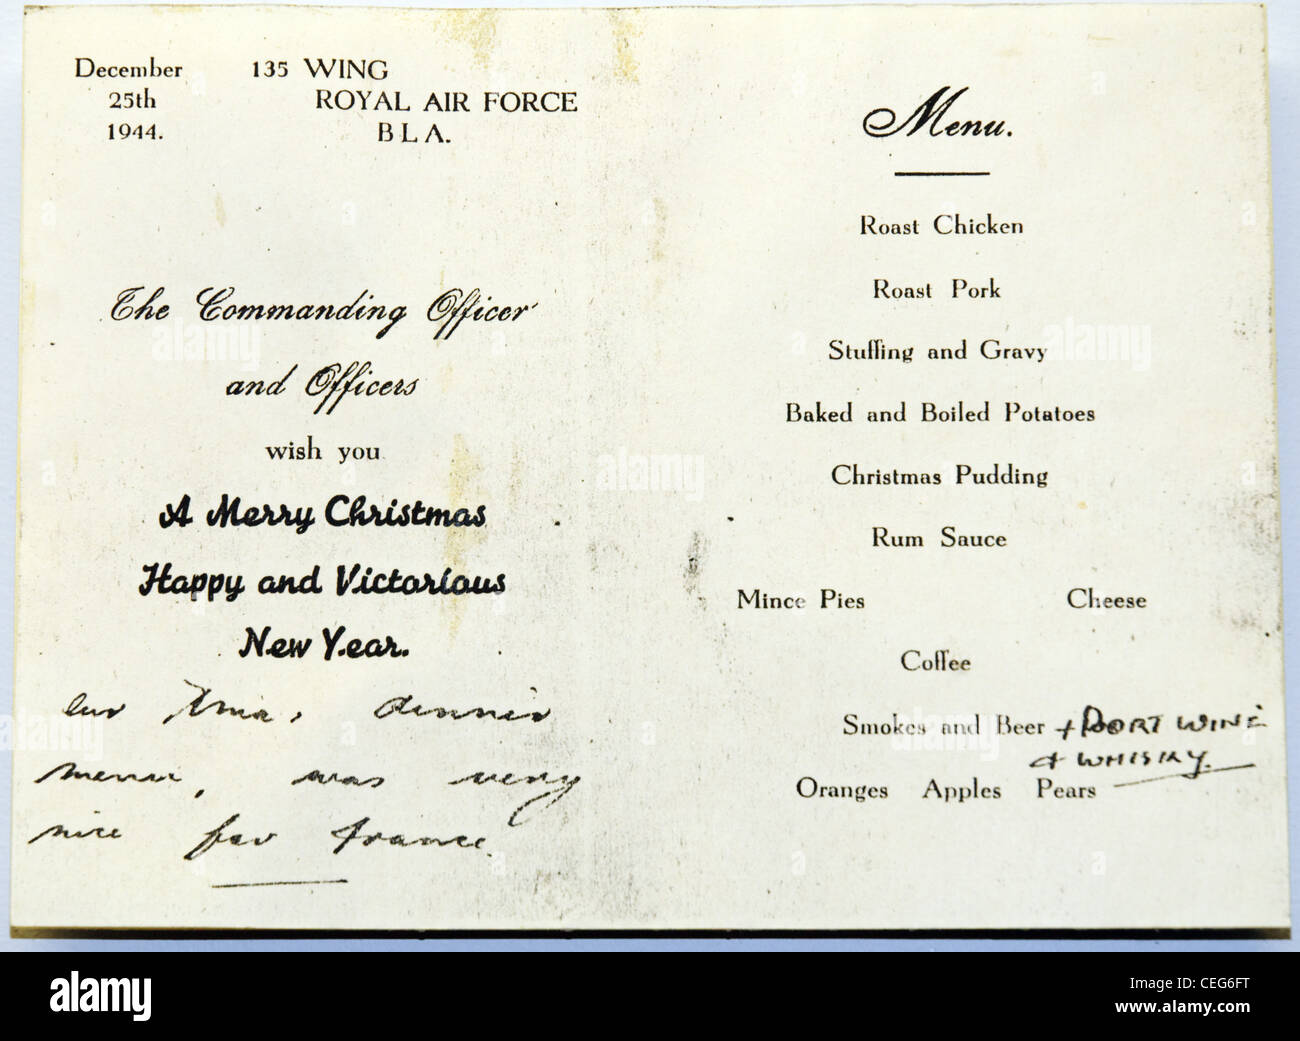 December
25th
1944.
135 WING
ROYAL AIR FORCE
B L A.
The Commanding Officer
and Officers
wish you
A Merry Christmas
Happy and Victorious
New Year.
our Xmas, dinner
menu, was very
nice for France.
Menu.
Roast Chicken
Roast Pork
Stuffing and Gravy
Baked and Boiled Potatoes
Christmas Pudding
Rum Sauce
Mince Pies Cheese
Coffee
Smokes and Beer + PORT WINE
+ WHISKY.
Oranges Apples Pears
alamy
Image ID: CEG6FT
www.alamy.com